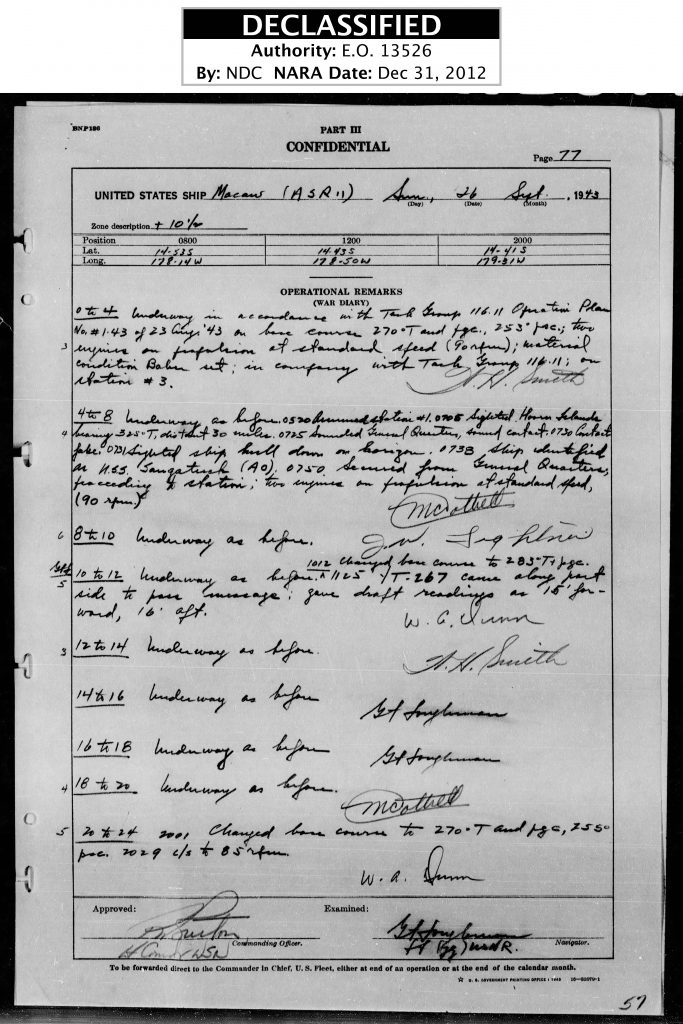 DECLASSIFIED
Authority: E.O. 13526
By: NDC NARA Date: Dec 31, 2012
BNP126
PART III
CONFIDENTIAL
Page 77
UNITED STATES SHIP Macaw (ASR 11) Sun, 26 Sept. , 1943
(Day) (Date) (Month)
Zone description + 10 1/2
Position 0800 1200 2000
Lat. 14-53S 14-43S 14-41S
Long. 178-14W 178-50W 179-31W
OPERATIONAL REMARKS
(WAR DIARY)
0 to 4 Underway in accordance with Task Group 116.11 Operation Plan
No. #1-43 of 23 Aug. '43 on base course 270°T and pgc., 253° psc.; two
3 engines on propulsion at standard speed (90 rpm); material
condition Baker set; in company with Task Group 116.11; on
station #3.
A. H. Smith
4 to 8 Underway as before. 0520 Assumed station #1. 0705 Sighted Hoorn Islands
4 bearing 325°T, distant 30 miles. 0725 Sounded General Quarters, sound contact. 0730 Contact
false. 0731 Sighted ship hull down on horizon. 0738 Ship identified
as U.S.S. Saugatuck (AO); 0750 Secured from General Quarters,
proceeding to station; two engines on propulsion at standard speed,
(90 rpm)
6 8 to 10 Underway as before.
1012 Changed base course to 283°T + pgc.
5 10 to 12 Underway as before. 1125 YT-267 came along port
side to pass message; gave draft readings as 15' for-
ward, 16' aft.
W. A. Dunn
3 12 to 14 Underway as before.
A. H. Smith
14 to 16 Underway as before
16 to 18 Underway as before
4 18 to 20 Underway as before.
5 20 to 24 2001 Changed base course to 270°T and pgc, 255°
psc. 2029 c/s to 85 rpm.
W. A. Dunn
Approved: Examined:
Lt Comdr USN Commanding Officer. Lt (jg) USNR. Navigator.
To be forwarded direct to the Commander in Chief, U. S. Fleet, either at end of an operation or at the end of the calendar month.
U. S. GOVERNMENT PRINTING OFFICE
57